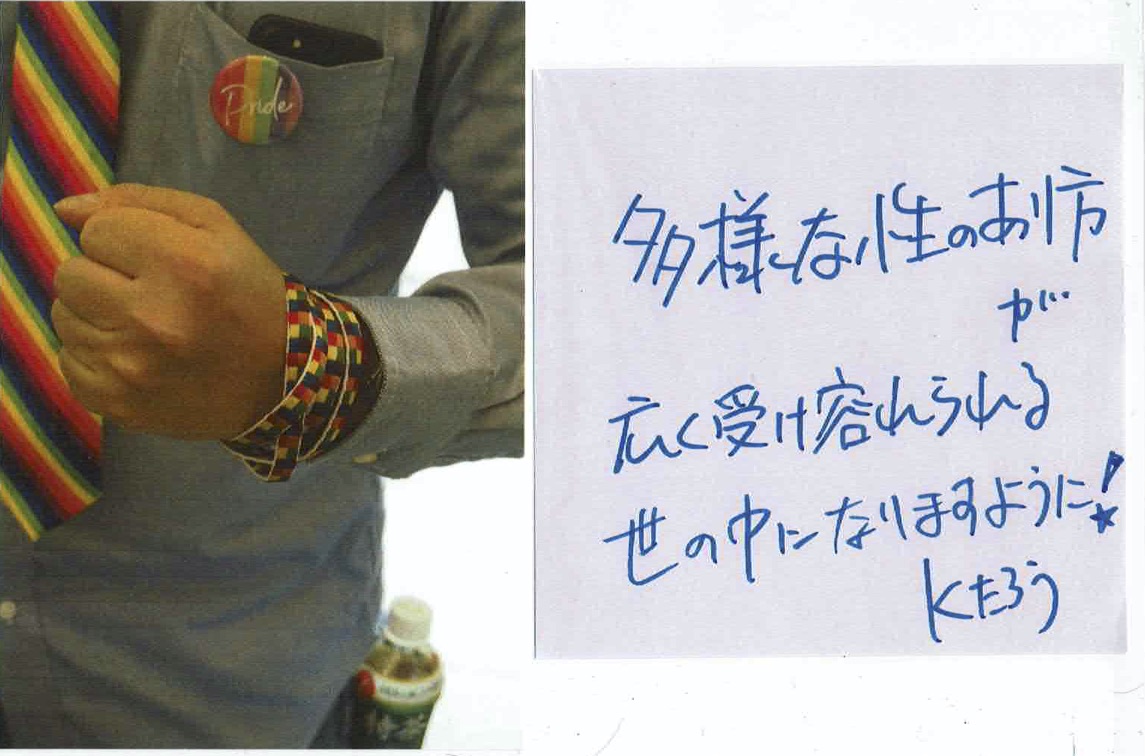 Pride
多様な性のあり方
が
広く受け容れられる
世の中になりますように!
Kたろう